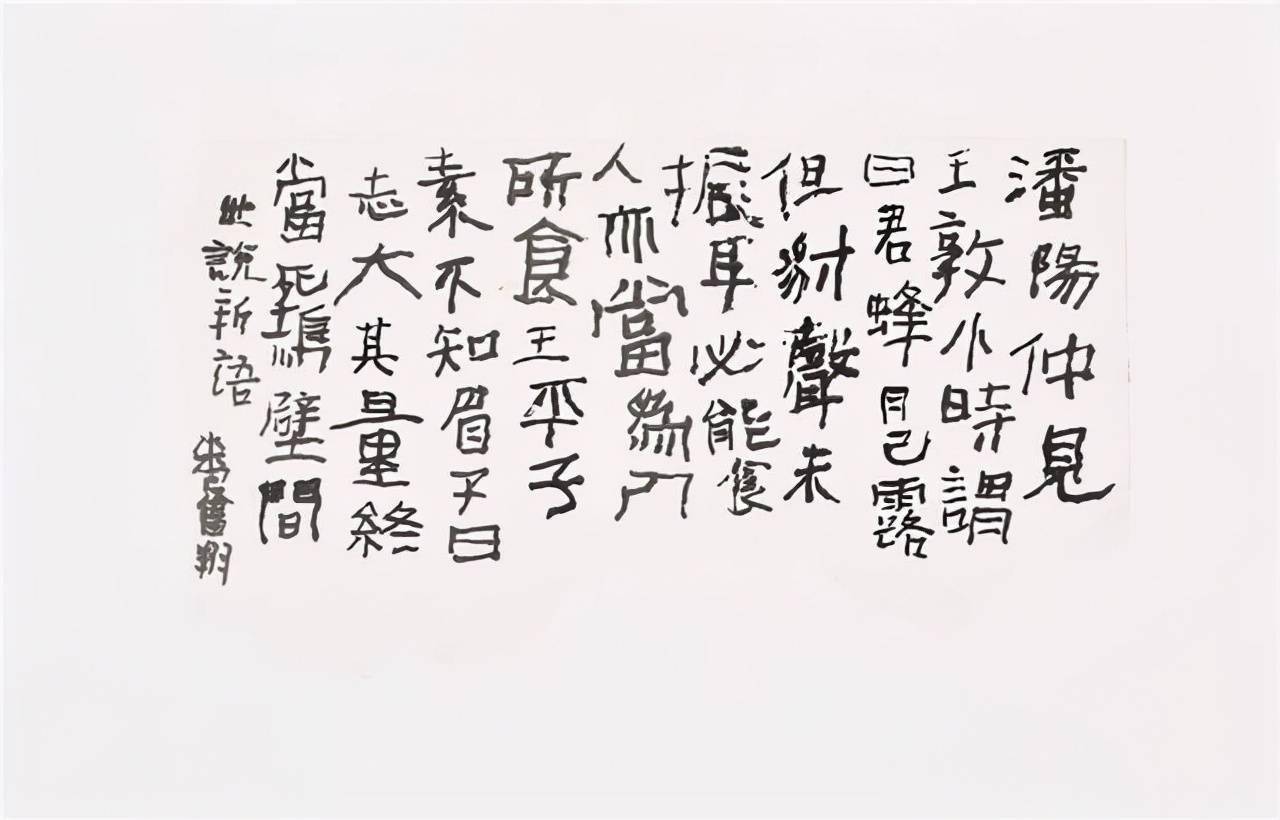 潘陽仲見
王敦小時謂
曰君蜂目已露
但豺聲未
振耳必能食
人亦當為人
所食王平子
素不知眉子曰
志大其量終
當死塢壁間
世說新語